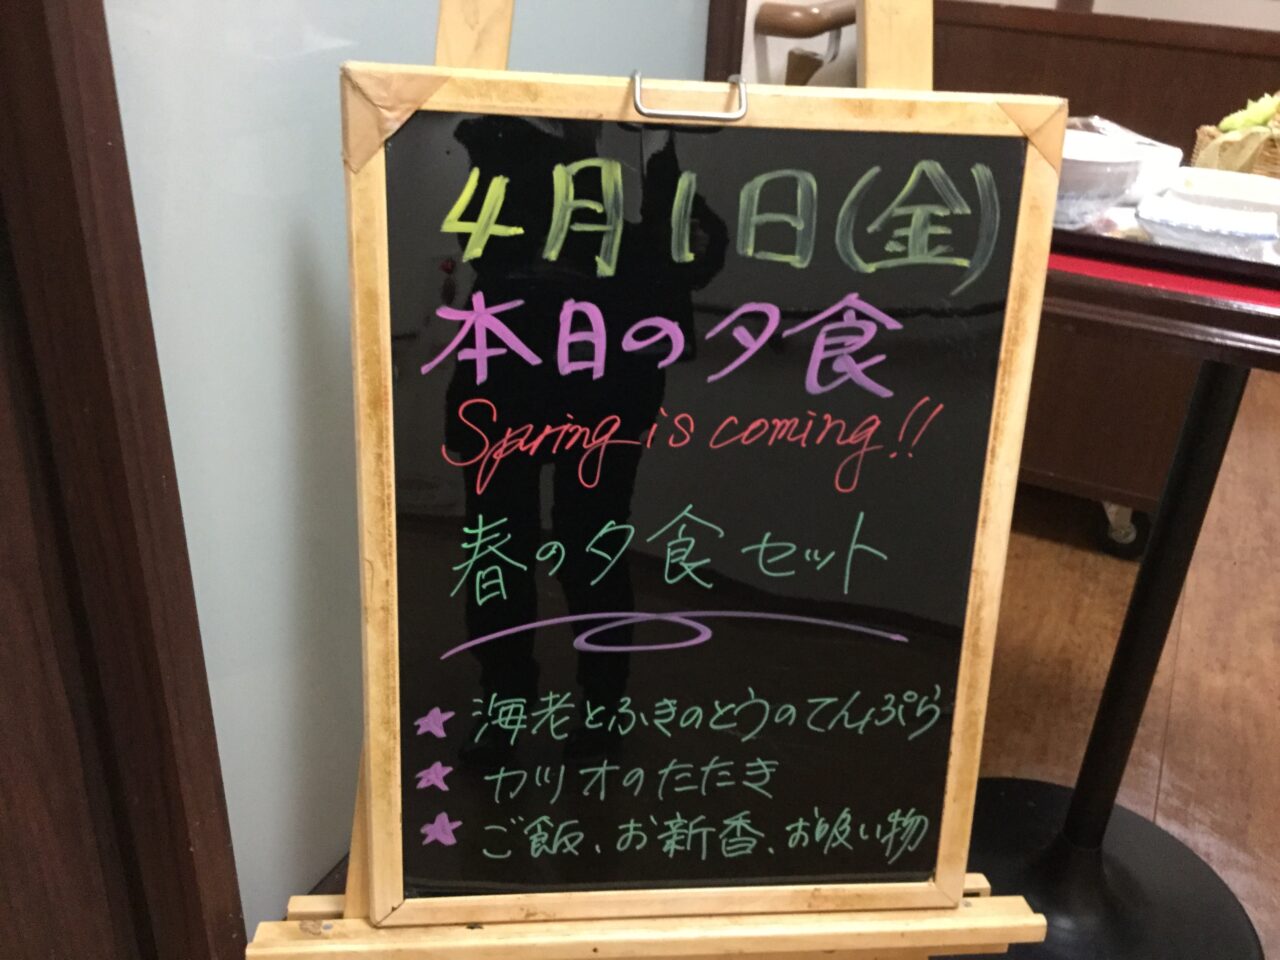 4月1日(金)
本日の夕食
Spring is coming!!
春の夕食セット
★ 海老とふきのとうのてんぷら
★ カツオのたたき
★ ご飯、お新香、お吸い物